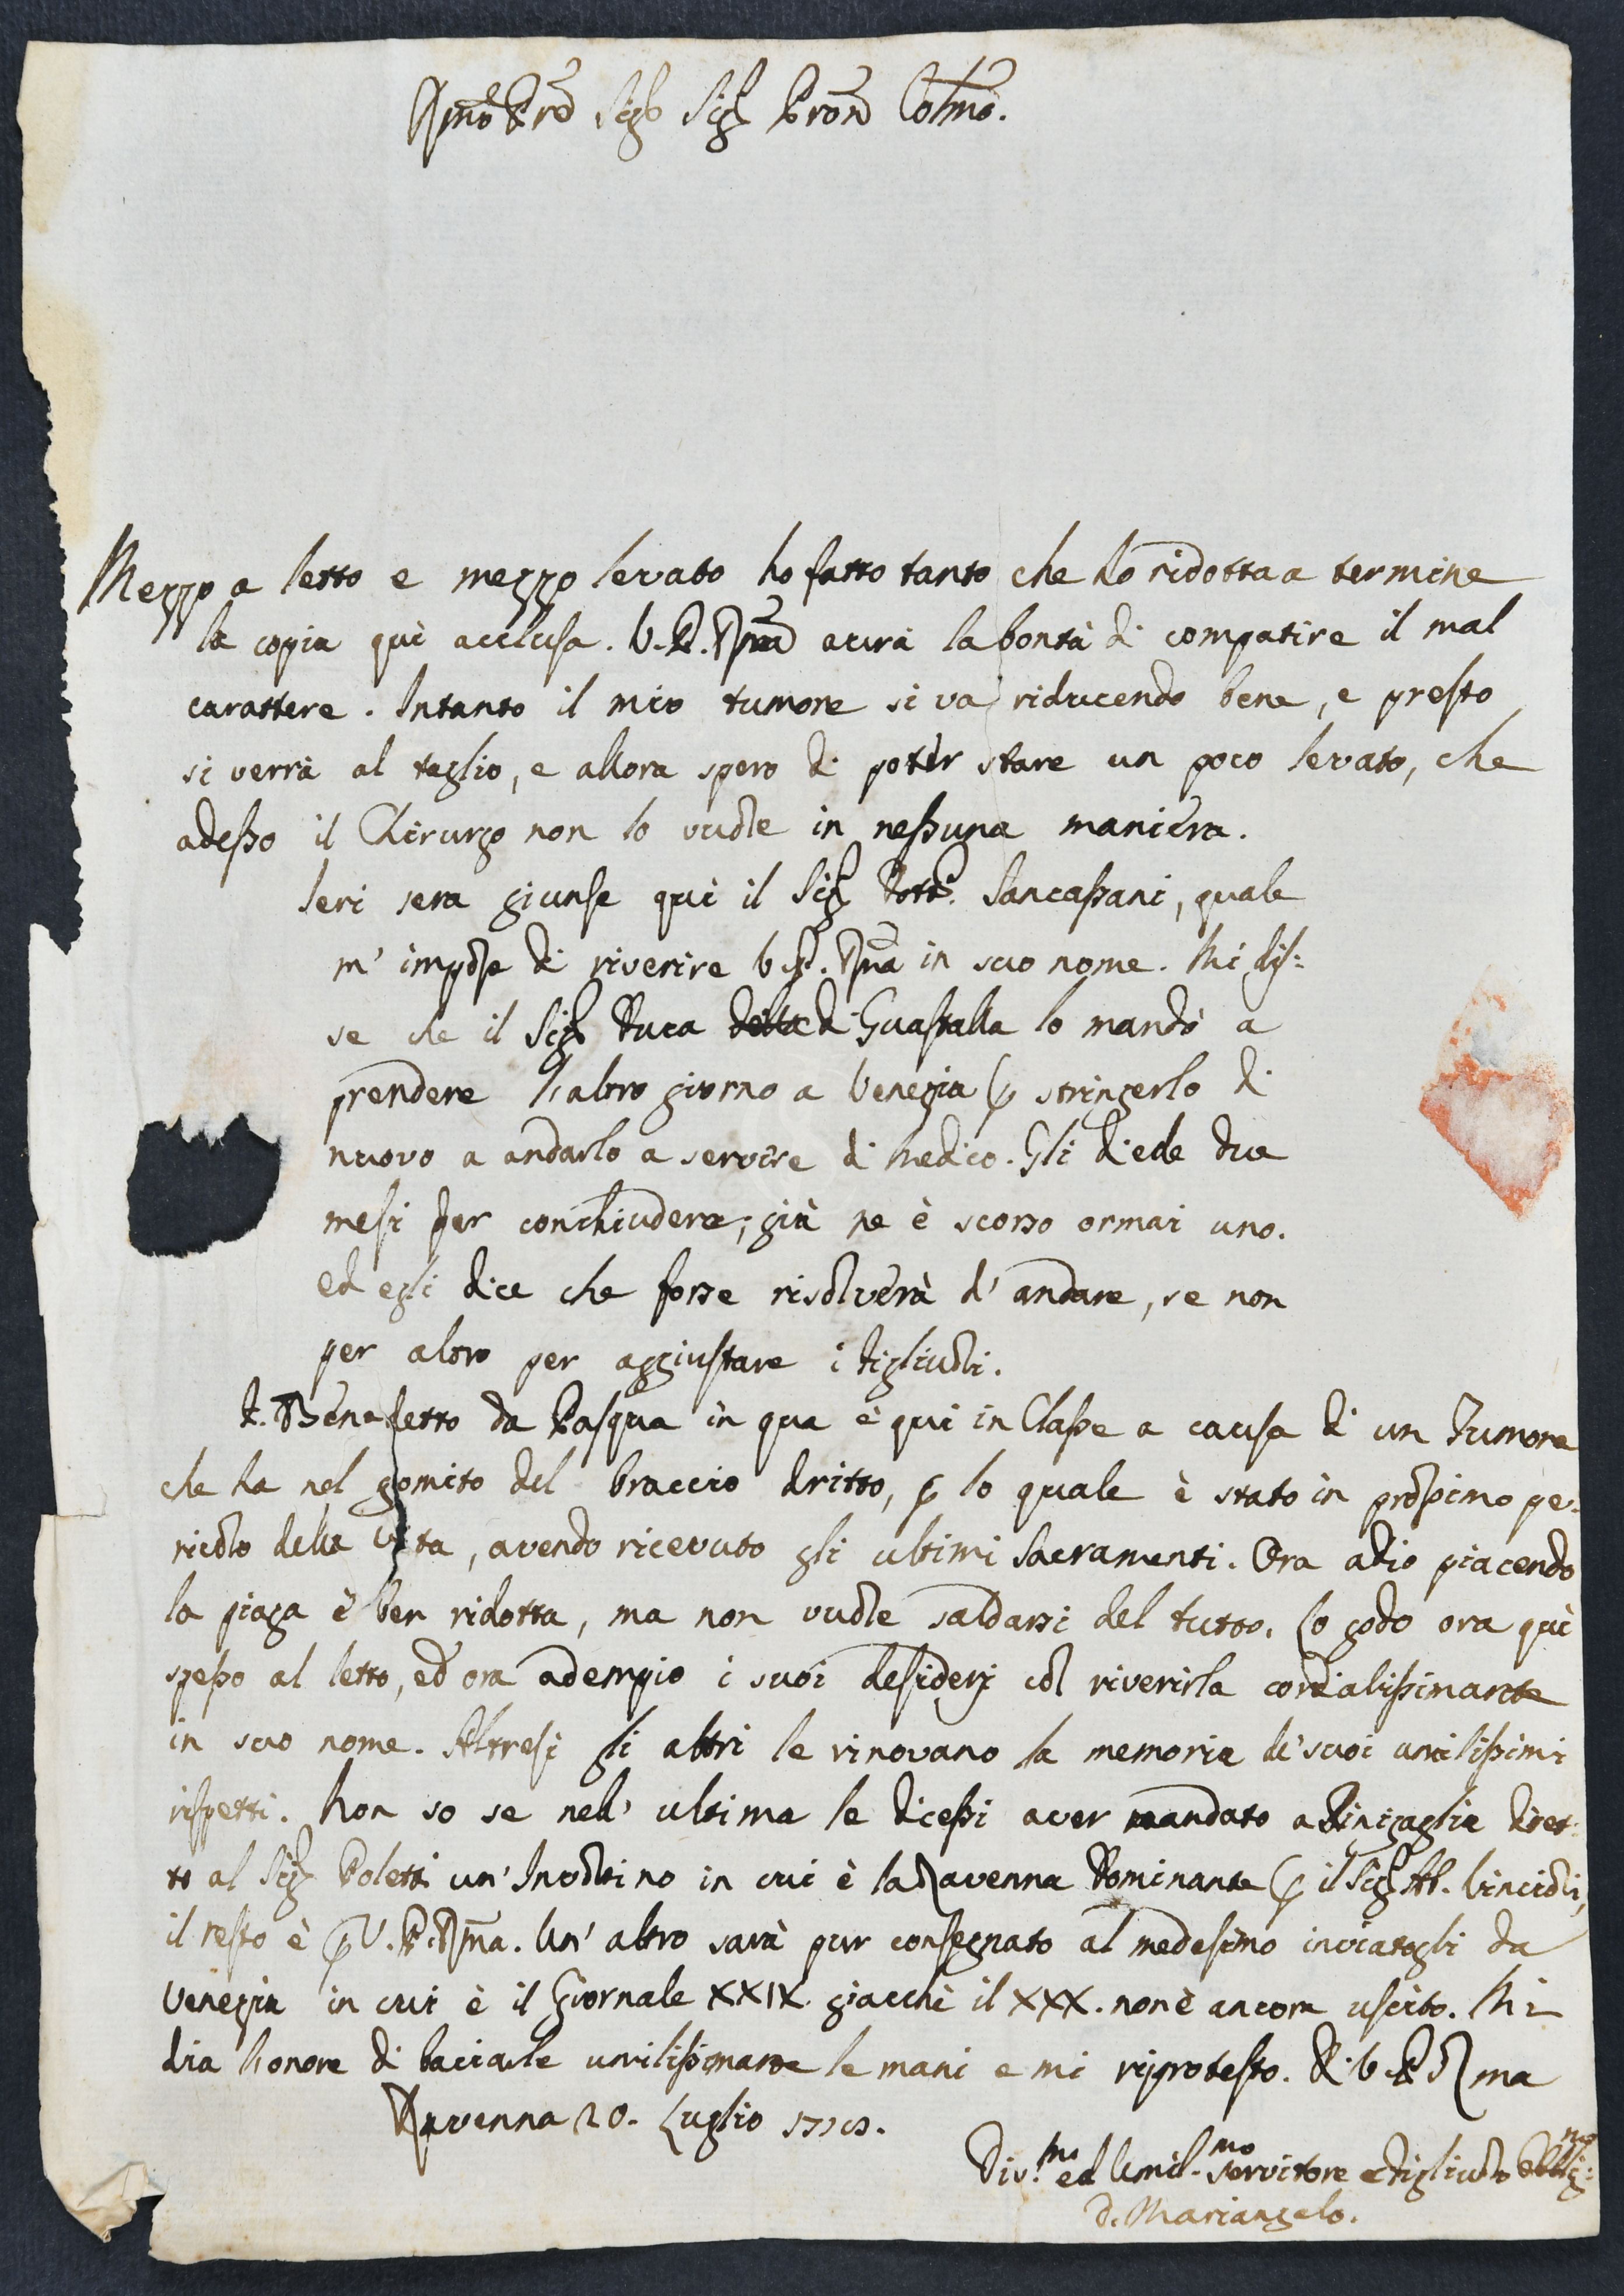 Rmo Pre Sigr Sigr Pron Colmo.
Mezzo a letto e mezzo levato ho fatto tanto che ho ridotta a termine
la copia quì acclusa. V. P. Rma avrà la bontà di compatire il mal
carattere. Intanto il mio tumore si va riducendo bene, e presto
si verrà al taglio, e allora spero di potèr stare un poco levato, che
adesso il Chirurgo non lo vuole in nessuna maniera.
Ieri sera giunse quì il Sigr Dottr. Sancassani, quale
m' impose di riverire V. P. Rma in suo nome. Mi dis:
se che il Sigr Duca di Guastalla lo mandò a
prendere l'altro giorno a Venezia p stringerlo di
nuovo a andarlo a servire di Medico. Gli diede due
mesi per conchiudere; già ne è scorso ormai uno.
Ed egli dice che forse risolverà d' andare, se non
per altro per aggiustare i figliuoli.
D. Benedetto da Pasqua in qua è qui in Classe a causa di un Tumore
che ha nel gomito del braccio dritto, p lo quale è stato in prossimo pe:
ricolo della vita, avendo ricevuto gli ultimi Sacramenti. Ora a Dio piacendo
la piaga è ben ridotta, ma non vuole saldarsi del tutto. Lo godo ora quì
spesso al letto, ed ora adempio i suoi desiderj col riverirla cordialissimante
in suo nome. Altresì gli altri le rinovano la memoria de' suoi umilissimi
rispetti. Non so se nell' ultima le dicessi aver mandato a Sinigaglia diret:
to al Sigr Poletti un' Involtino in cui è la Ravenna Dominante p il Sigr Ab. Vincioli,
il resto è p V. P. Rma. Un' altro sarà pur consegnato al medesimo inviatogli da
Venezia in cui è il Giornale XXIX. giacchè il XXX. non è ancora uscito. Mi
dia l'onore di baciarle umilissimante le mani e mi riprotesto. Di V. P. Rma
Ravenna 20. Luglio
Div.mo ed Umil.mo servitore e figliuolo Obblig:mo
D. Mariangelo.